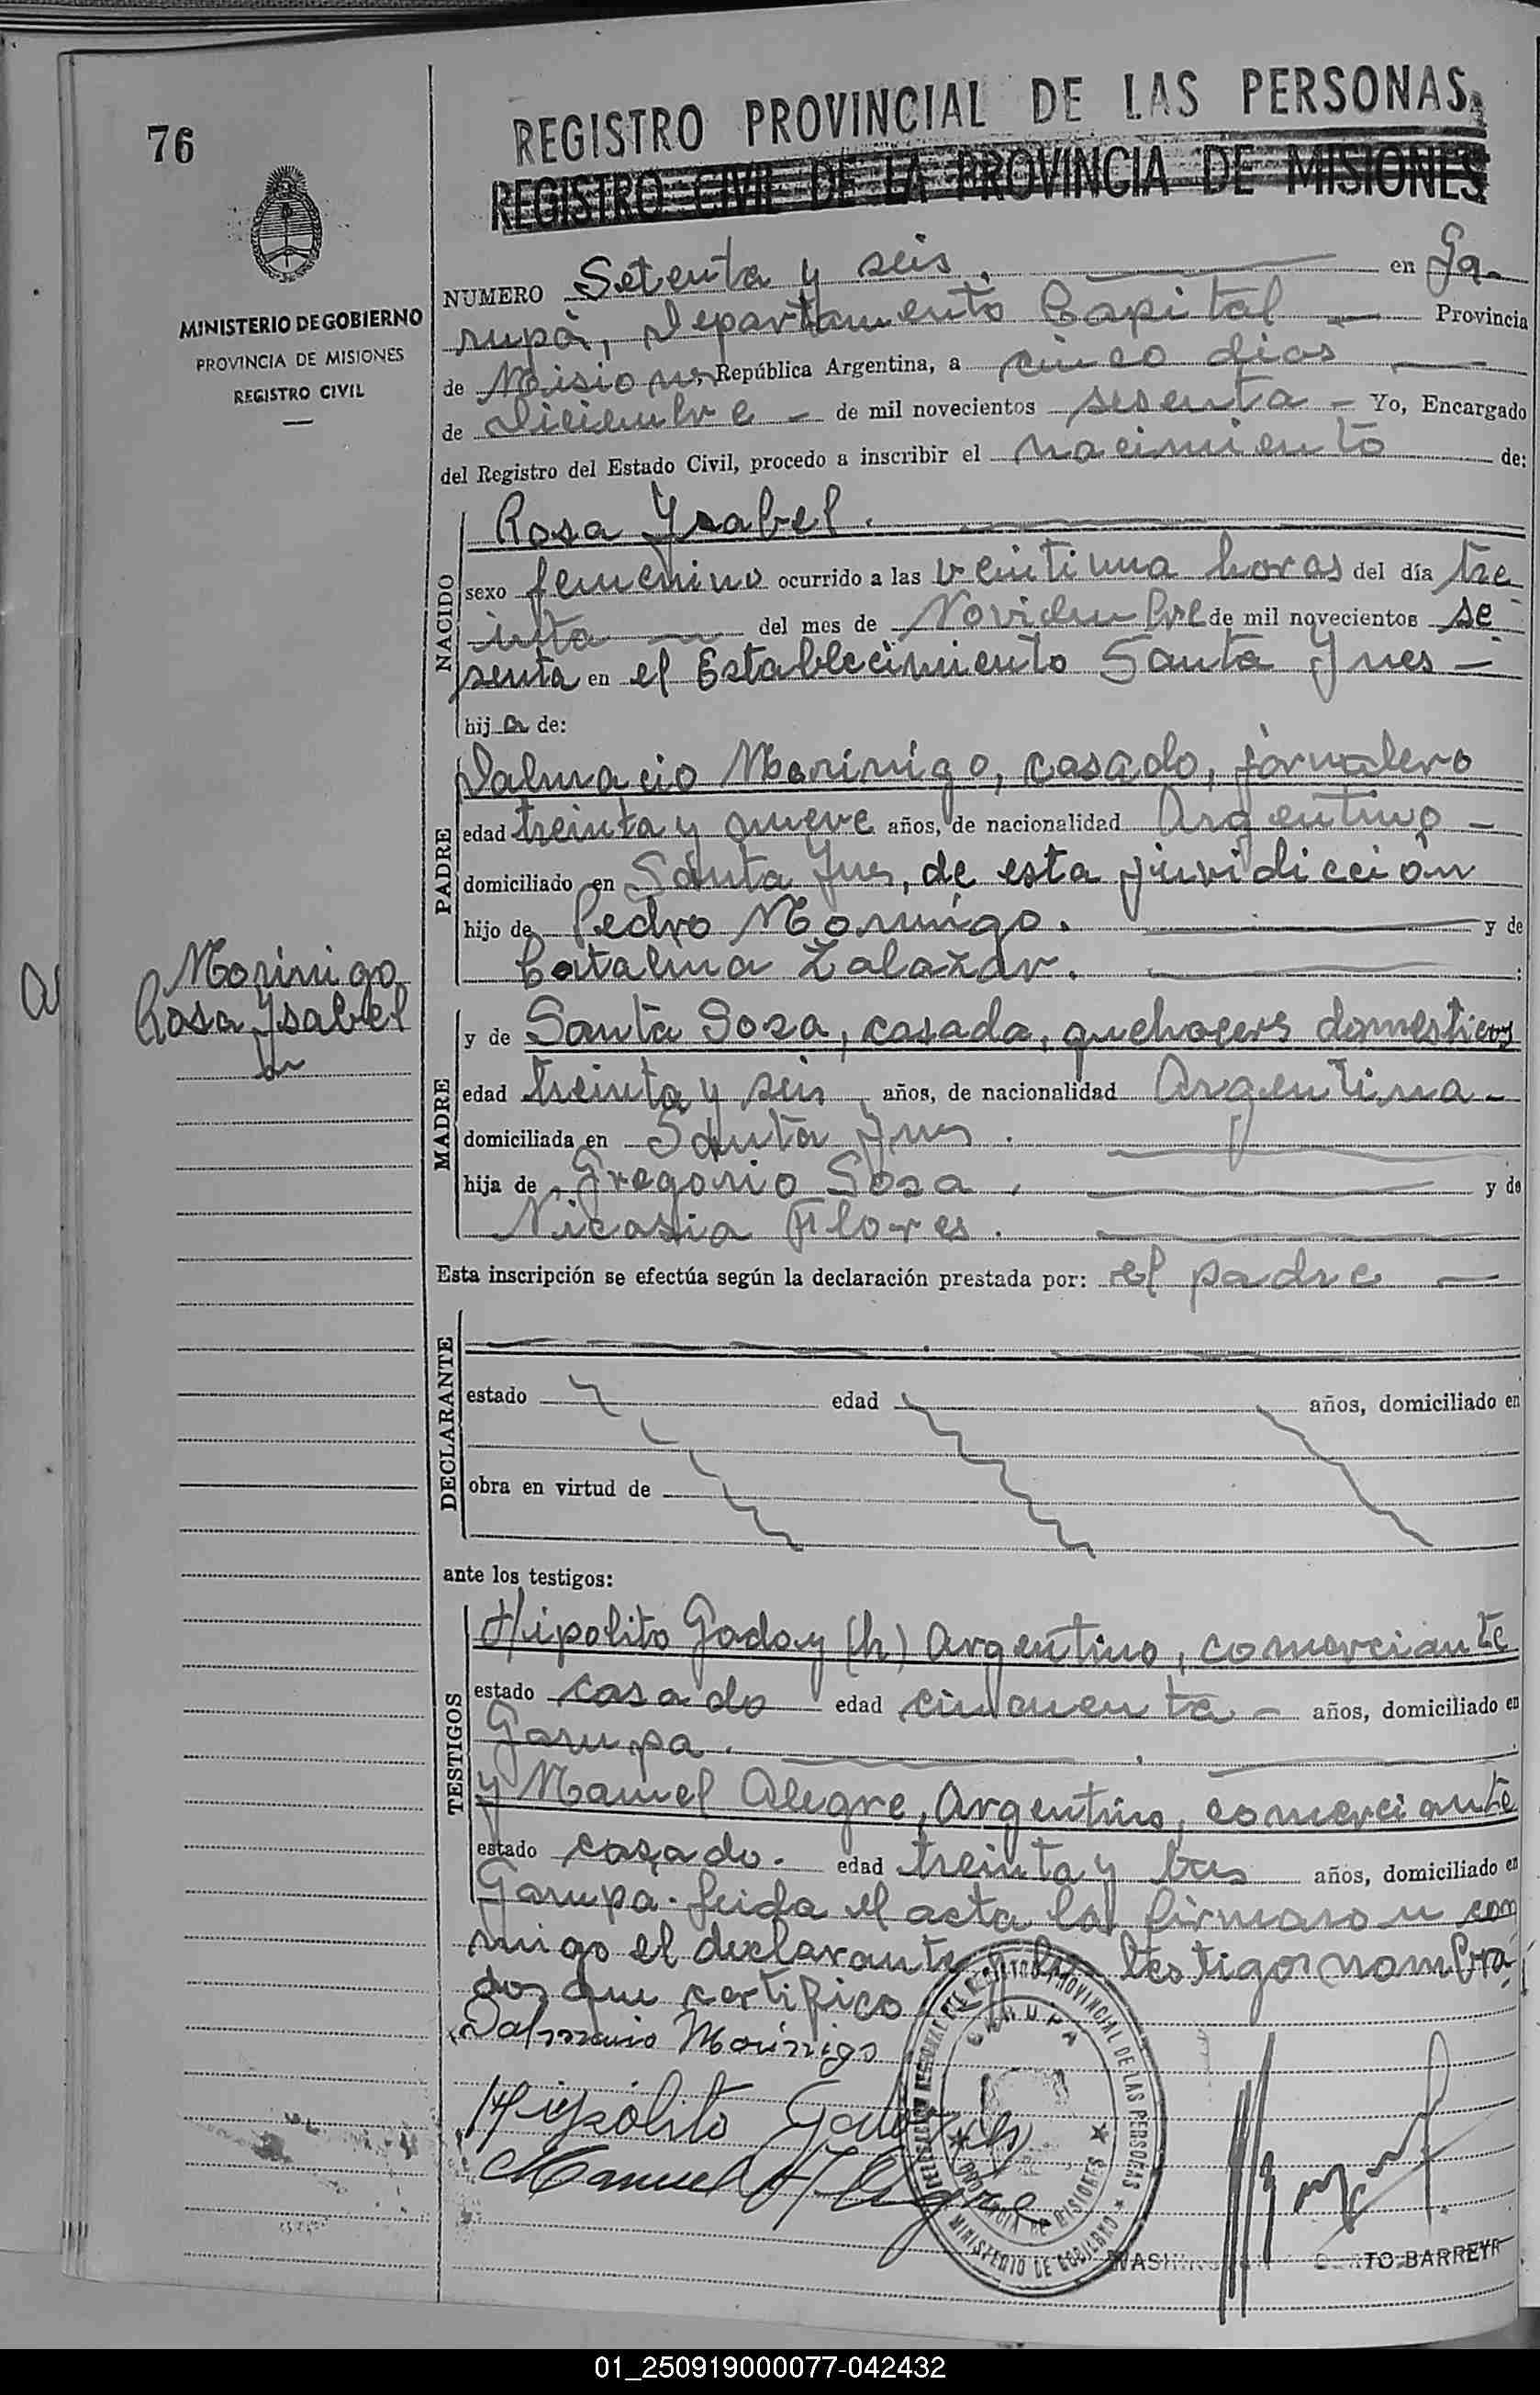 76
REGISTRO PROVINCIAL DE LAS PERSONAS
REGISTRO CIVIL DE LA PROVINCIA DE MISIONES
MINISTERIO DE GOBIERNO
PROVINCIA DE MISIONES
REGISTRO CIVIL
NUMERO Setenta y seis. en Ga-
rupá, Departamento Capital Provincia
de Misiones, República Argentina, a cinco dias
de Diciembre - de mil novecientos sesenta - Yo, Encargado
del Registro del Estado Civil, procedo a inscribir el nacimiento de:
NACIDO
Rosa Ysabel.
sexo femenino ocurrido a las veintiuna horas del día tre
inta del mes de Noviembre de mil novecientos se
senta en el Establecimiento Santa Ynes -
hija de:
PADRE
Dalmacio Morinigo, casado, jornalero
edad treinta y nueve años, de nacionalidad Argentino -
domiciliado en Santa Ynes, de esta juridicción
hijo de Pedro Morinigo. y de
Catalina Zalazar. :
Morinigo
Rosa Ysabel
MADRE
y de Santa Sosa, casada, quehaceres domesticos
edad treinta y seis años, de nacionalidad Argentina -
domiciliada en Santa Ynes.
hija de Gregorio Sosa, y de
Nicasia Flores.
Esta inscripción se efectúa según la declaración prestada por: el padre -
DECLARANTE
estado edad años, domiciliado en
obra en virtud de
ante los testigos:
TESTIGOS
Hipolito Godoy (h) Argentino, comerciante
estado casado edad cincuenta - años, domiciliado en
Garupa.
y Manuel Alegre, Argentino, comerciante
estado casado. edad treinta y tres años, domiciliado en
Garupa. Leida el acta la firmaron con
migo el declarante y los testigos nombra
dos que certifico
Dalmacio Morinigo
Hipólito Godoy
Manuel Alegre
REGISTRO PROVINCIAL DE LAS PERSONAS
GARUPA
PROVINCIA DE MISIONES
MINISTERIO DE GOBIERNO
BARREYR
01_250919000077-042432